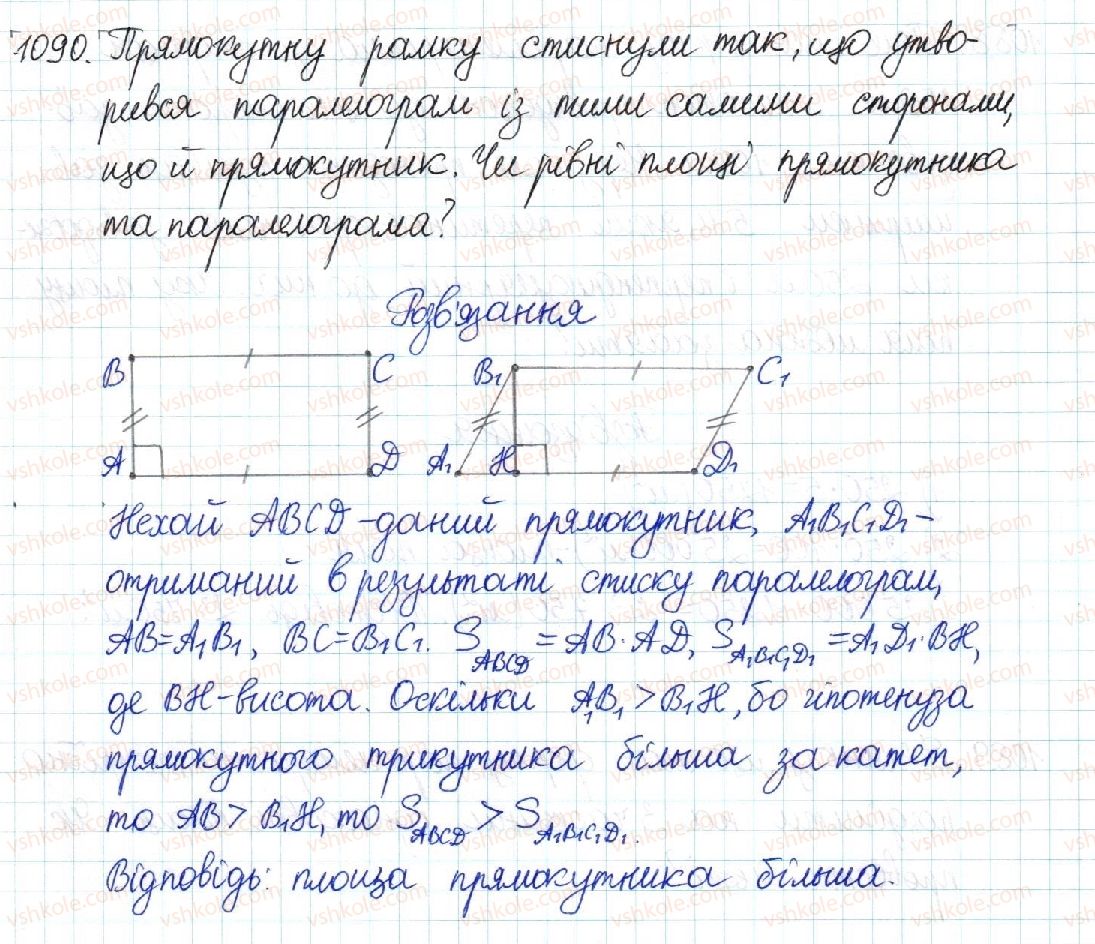 1090. Прямокутну рамку стиснули так, що утво-
рився паралелограм із тими самими сторонами,
що й прямокутник. Чи рівні площі прямокутника
та паралелограма?
Розв'язання
B C B₁ C₁
A D A₁ H D₁
Нехай ABCD - даний прямокутник, A₁B₁C₁D₁ -
отриманий в результаті стиску паралелограм,
AB=A₁B₁, BC=B₁C₁. S_ABCD = AB·AD, S_A₁B₁C₁D₁ = A₁D₁·BH,
де BH - висота. Оскільки A₁B₁ > B₁H, бо гіпотенуза
прямокутного трикутника більша за катет,
то AB > B₁H, то S_ABCD > S_A₁B₁C₁D₁.
Відповідь: площа прямокутника більша.